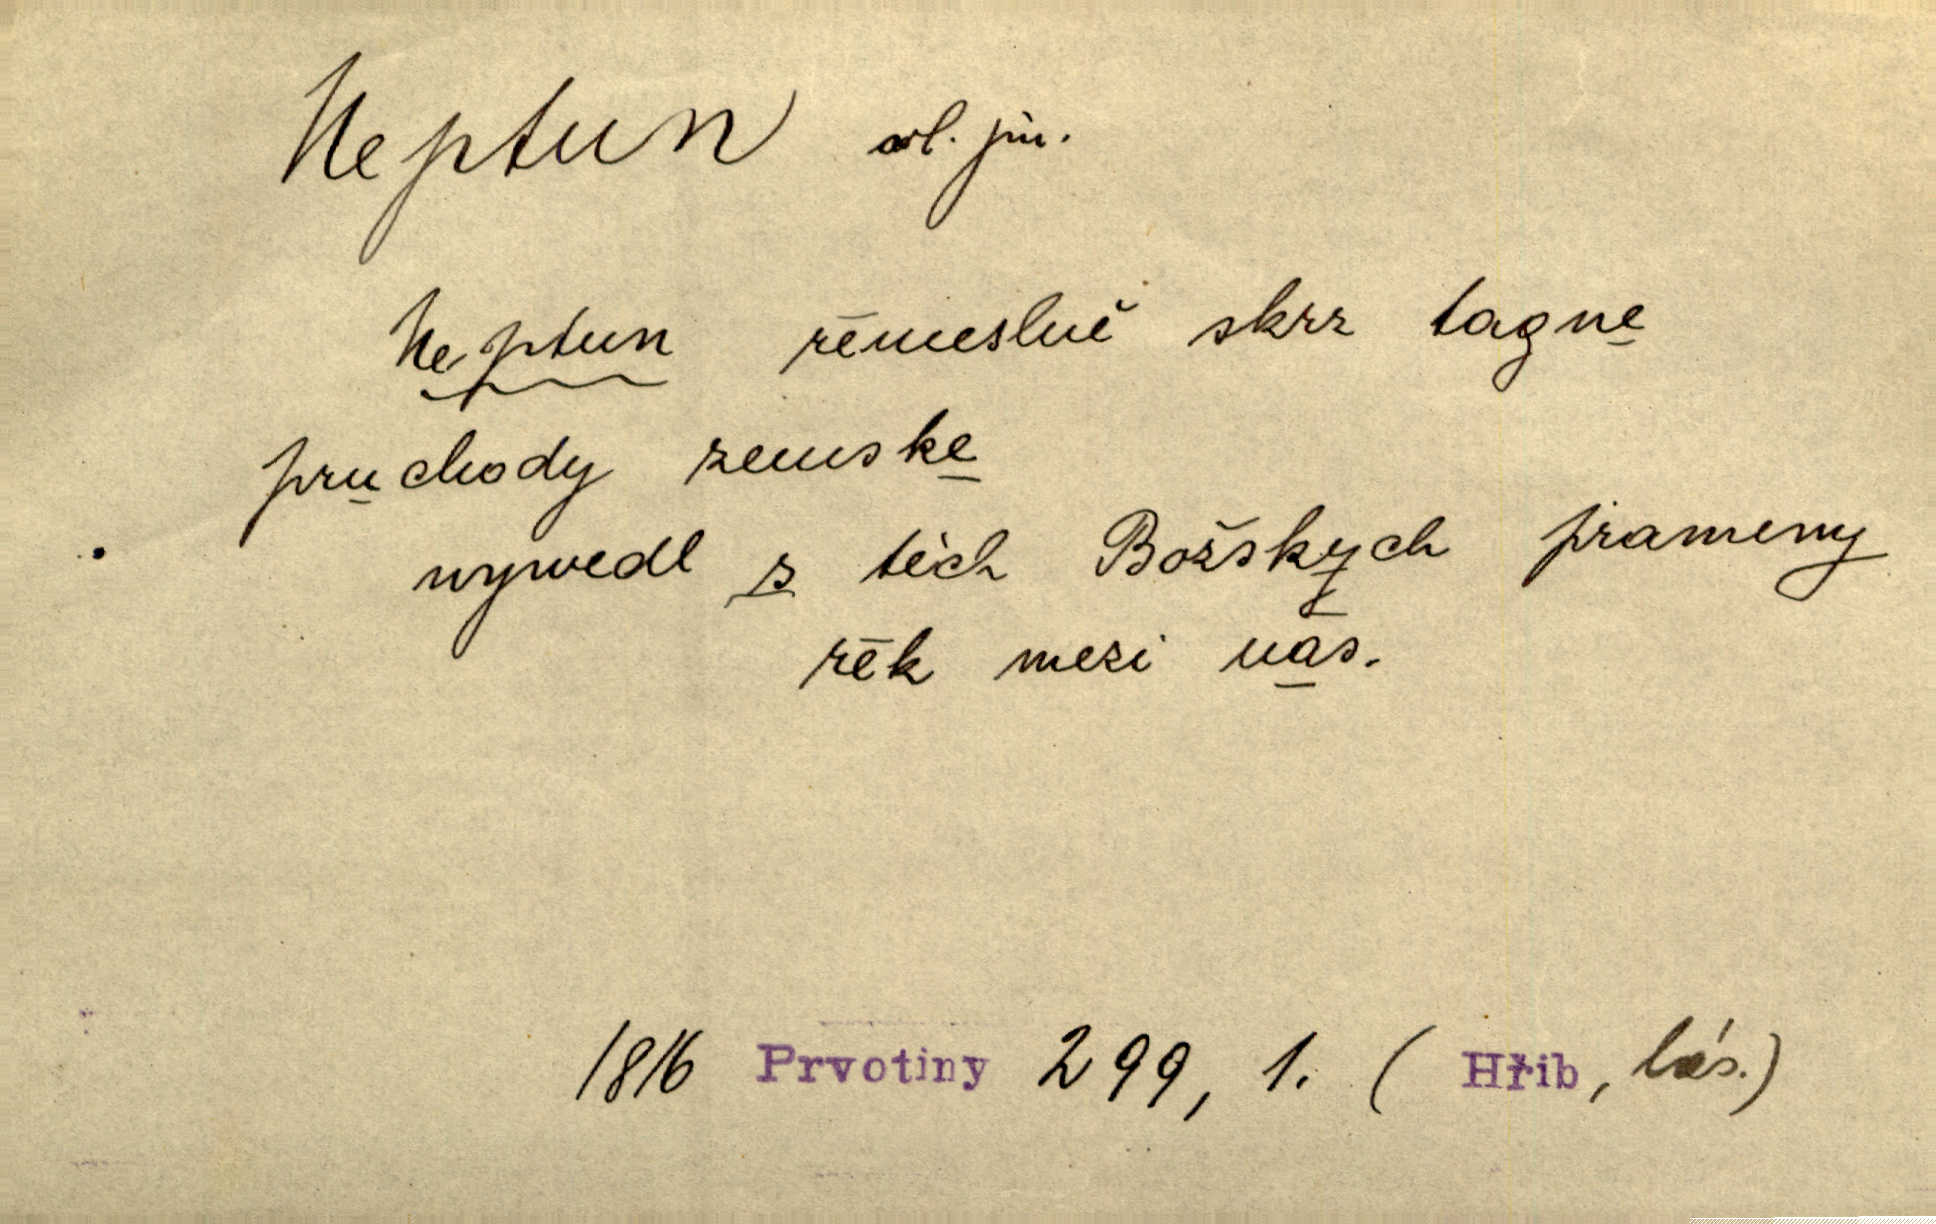 Neptun vl. jm.
Neptun řemeslně skrz tagne
pruchody zemske
wywedl z těch Božskych prameny
řěk mezi nas.
1816 Prvotiny 299, 1. (Hřib, bás.)